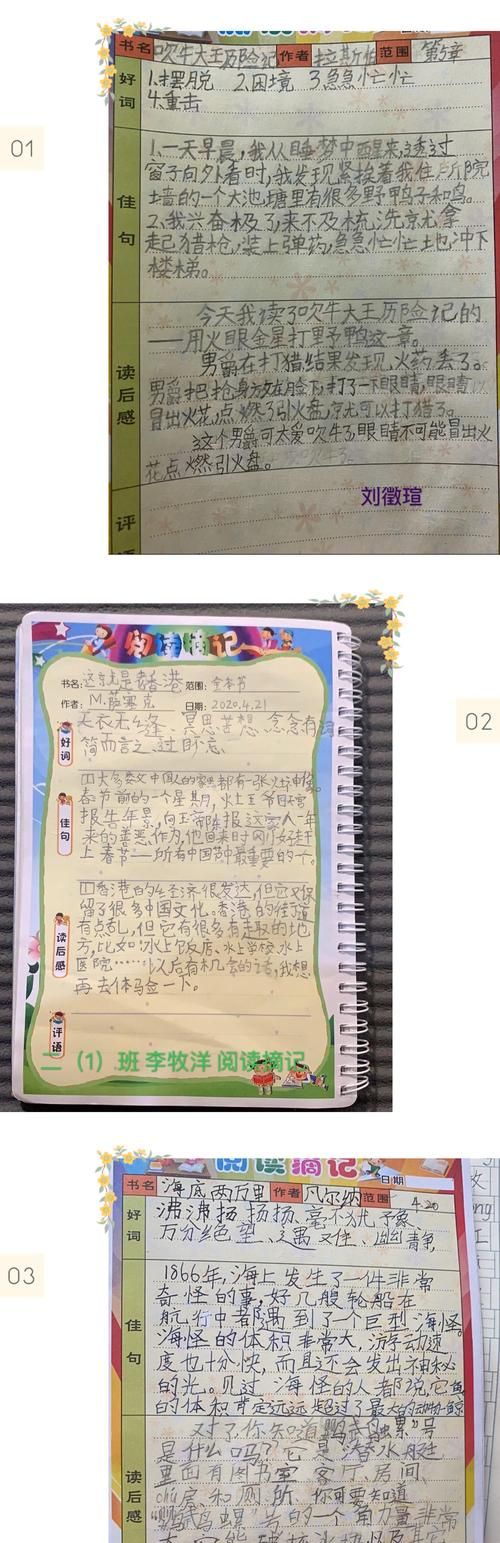 01
书名 吹牛大王历险记 作者 拉斯伯 范围 第5章
好词
1.摆脱 2.困境 3.急急忙忙
4.重击
佳句
1.一天早晨,我从睡梦中醒来,透过
窗子向外看时,我发现紧挨着我住所院
墙的一个大池塘里有很多野鸭子和鸟。
2.我兴奋极了,来不及梳洗就拿
起猎枪,装上弹药,急急忙忙地冲下
楼梯。
读后感
今天我读了吹牛大王历险记的
——用火眼金星打野鸭这一章。
男爵在打猎结果发现,火药丢了。
男爵把抢身放在脸下,打了一下眼睛,眼睛
冒出火花,点燃了引火盘,就可以打猎了。
这个男爵可太爱吹牛了,眼睛不可能冒出火
花点燃引火盘。
评语
刘徵瑄
02
阅读摘记
书名: 这就是香港 范围: 全本书
作者: M.萨塞克 日期: 2020.4.21
好词
天衣无缝、冥思苦想、念念有词
简而言之、过目忘
佳句
(1)大多数中国人的家里都有一张火灶神像。
春节前的一个星期,火上王爷回天宫
报告年景,向玉帝陛报这家人一年
来的善恶作为,他回来时刚好赶
上春节——所有中国节中最重要的一个。
读后感
(1)香港的经济很发达,但它又保
留了很多中国文化。香港的街道
有点乱,但它有很多有趣的地
方,比如水上饭店、水上学校、水上
医院……以后有机会的话,我想
再去体验一下。
评语
二(1)班 李牧洋 阅读摘记
03
阅读摘记
日期
书名 海底两万里 作者 凡尔纳 范围 4.20
好词
沸沸扬扬、毫不犹豫、
万分绝望、遇难、幽静
佳句
1866年,海上发生了一件非常
奇怪的事,好几艘轮船在
航行中都遇到了一个巨型海怪。
海怪的体积非常大,游动速
度也十分快,而且还会发出神秘
的光。见过海怪的人都说,它
的体积肯定远远超过了最大的动物—鲸
读后感
对了,你知道“鹦鹉螺”号
是什么吗?它是潜水艇
里面有图书室、客厅、房间、
chú房、和厕所,你可要知道
“鹦鹉螺”号的一个角力量非常